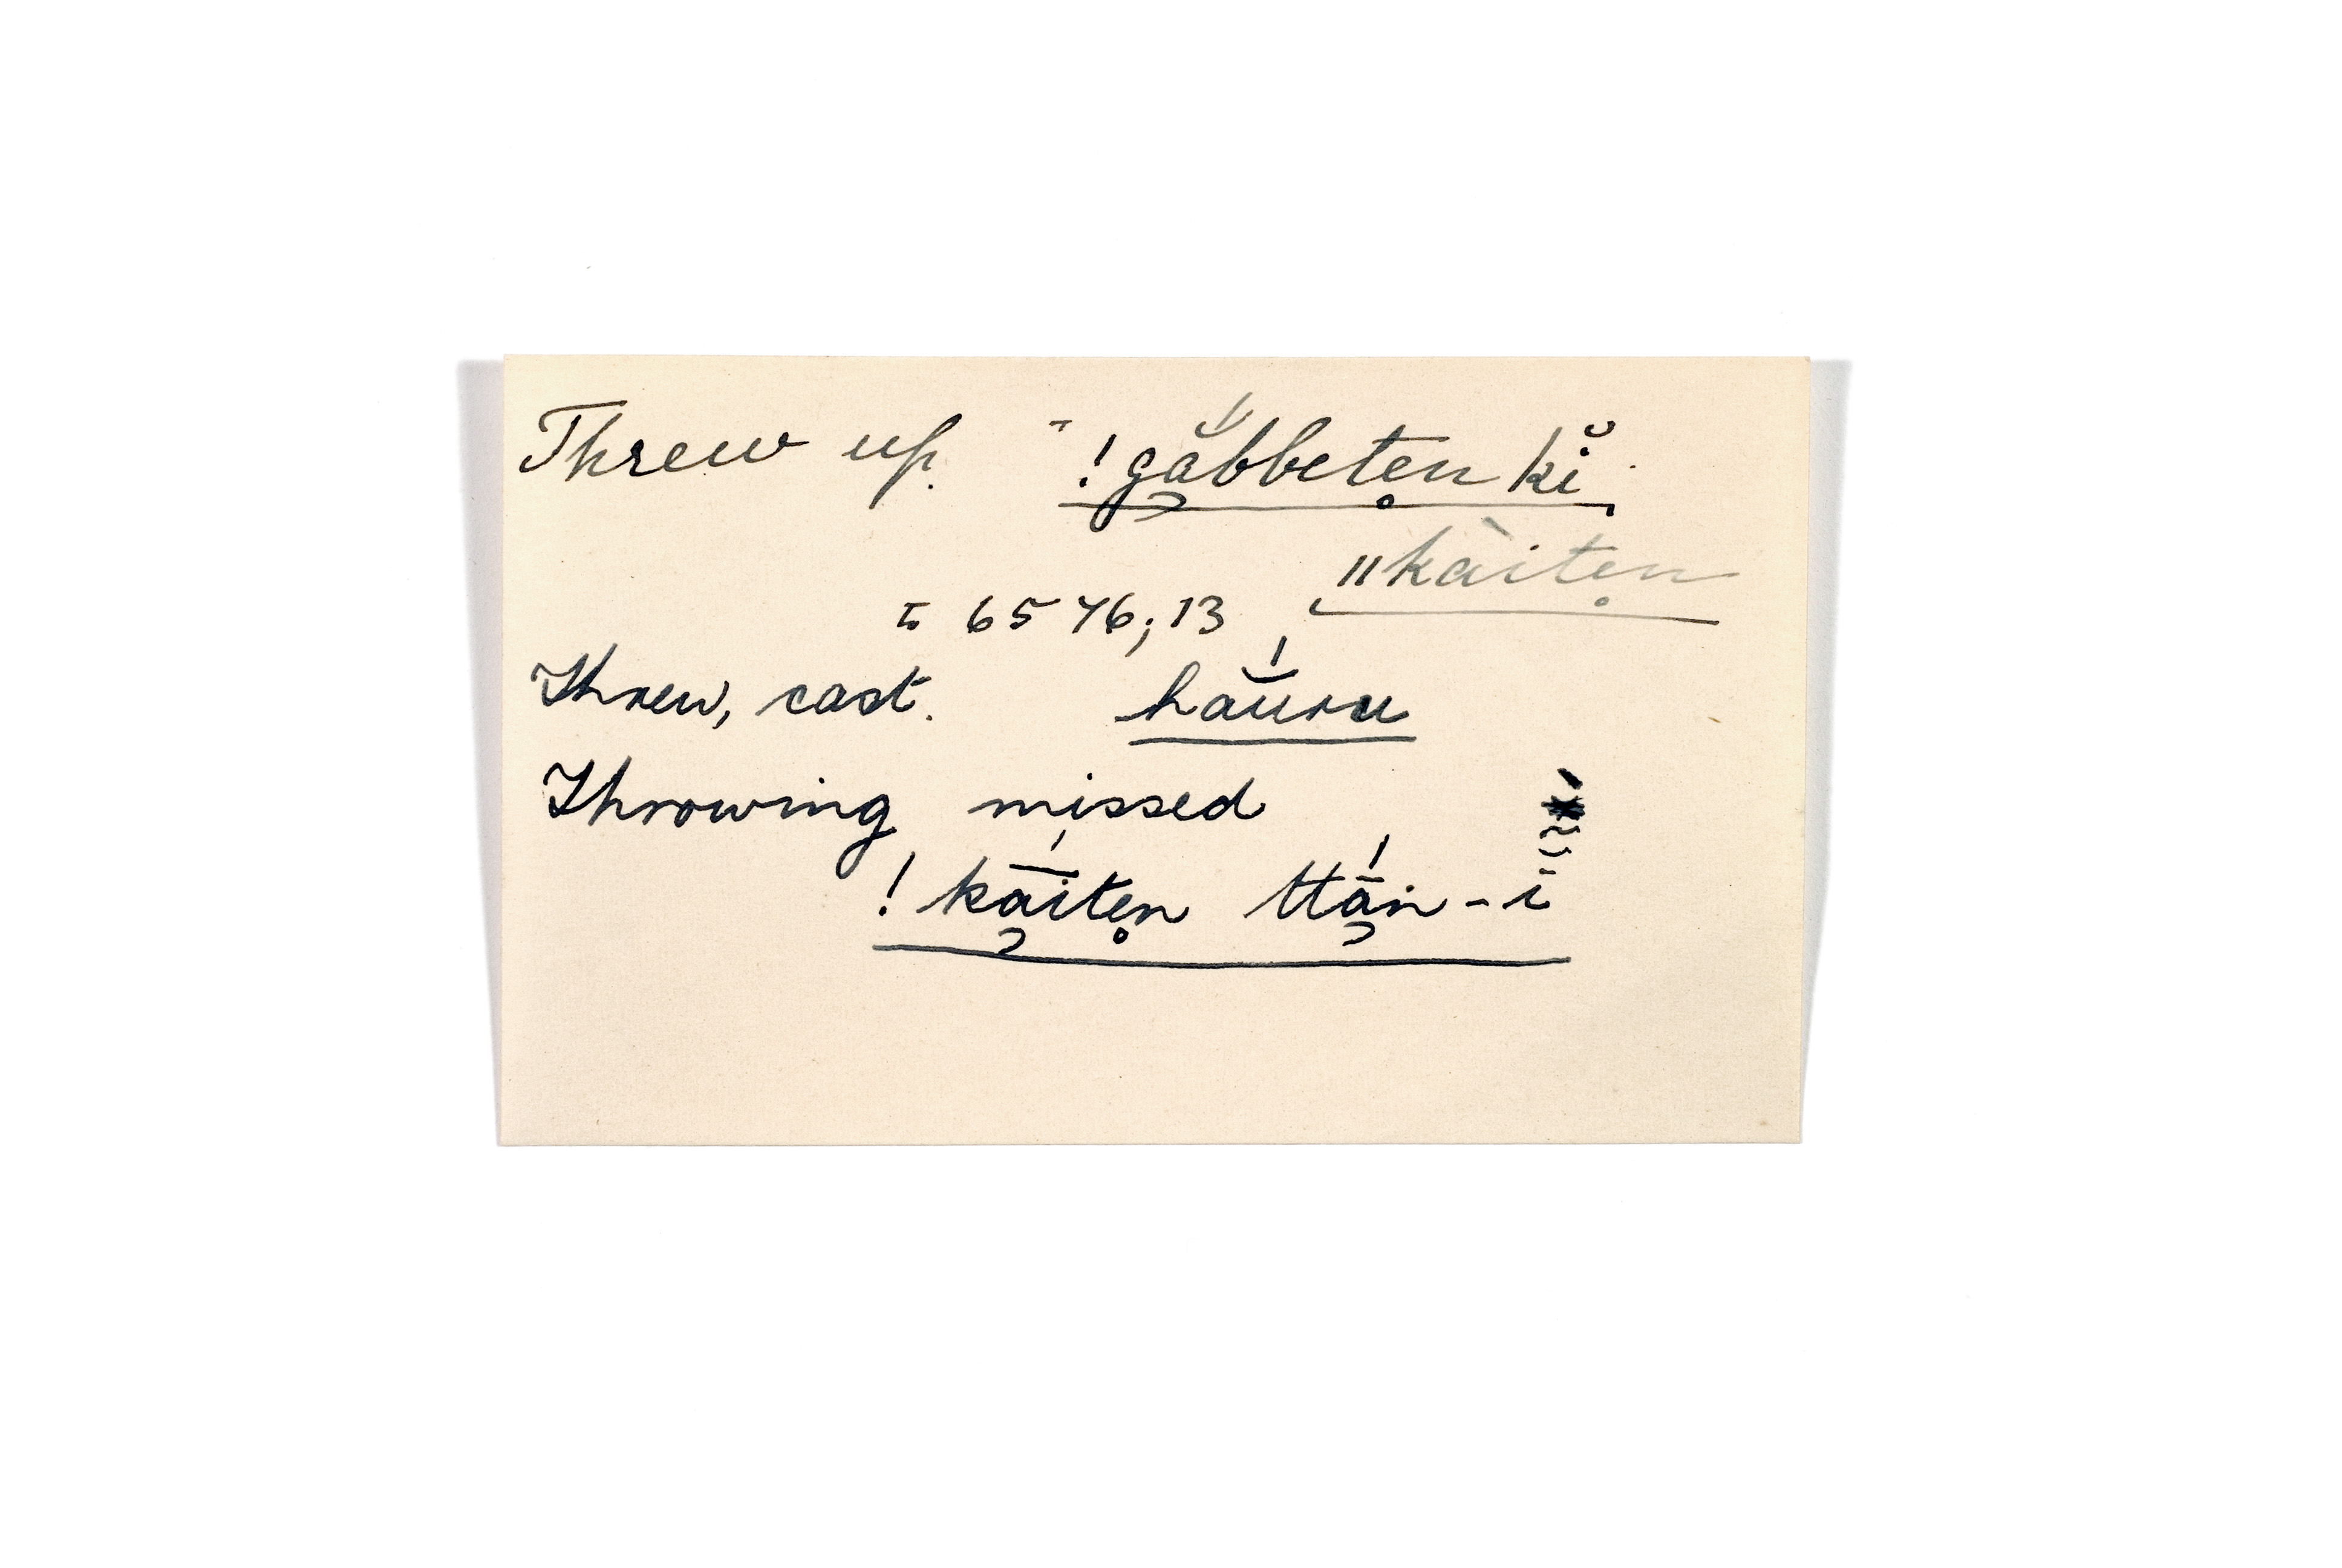 Threw up. !gắbbetẹn kĭ
ǁkàitẹn
= 6576; 13
Threw, cast. hắuru
Throwing missed
!kā́itẹn ttā́n-ĭ